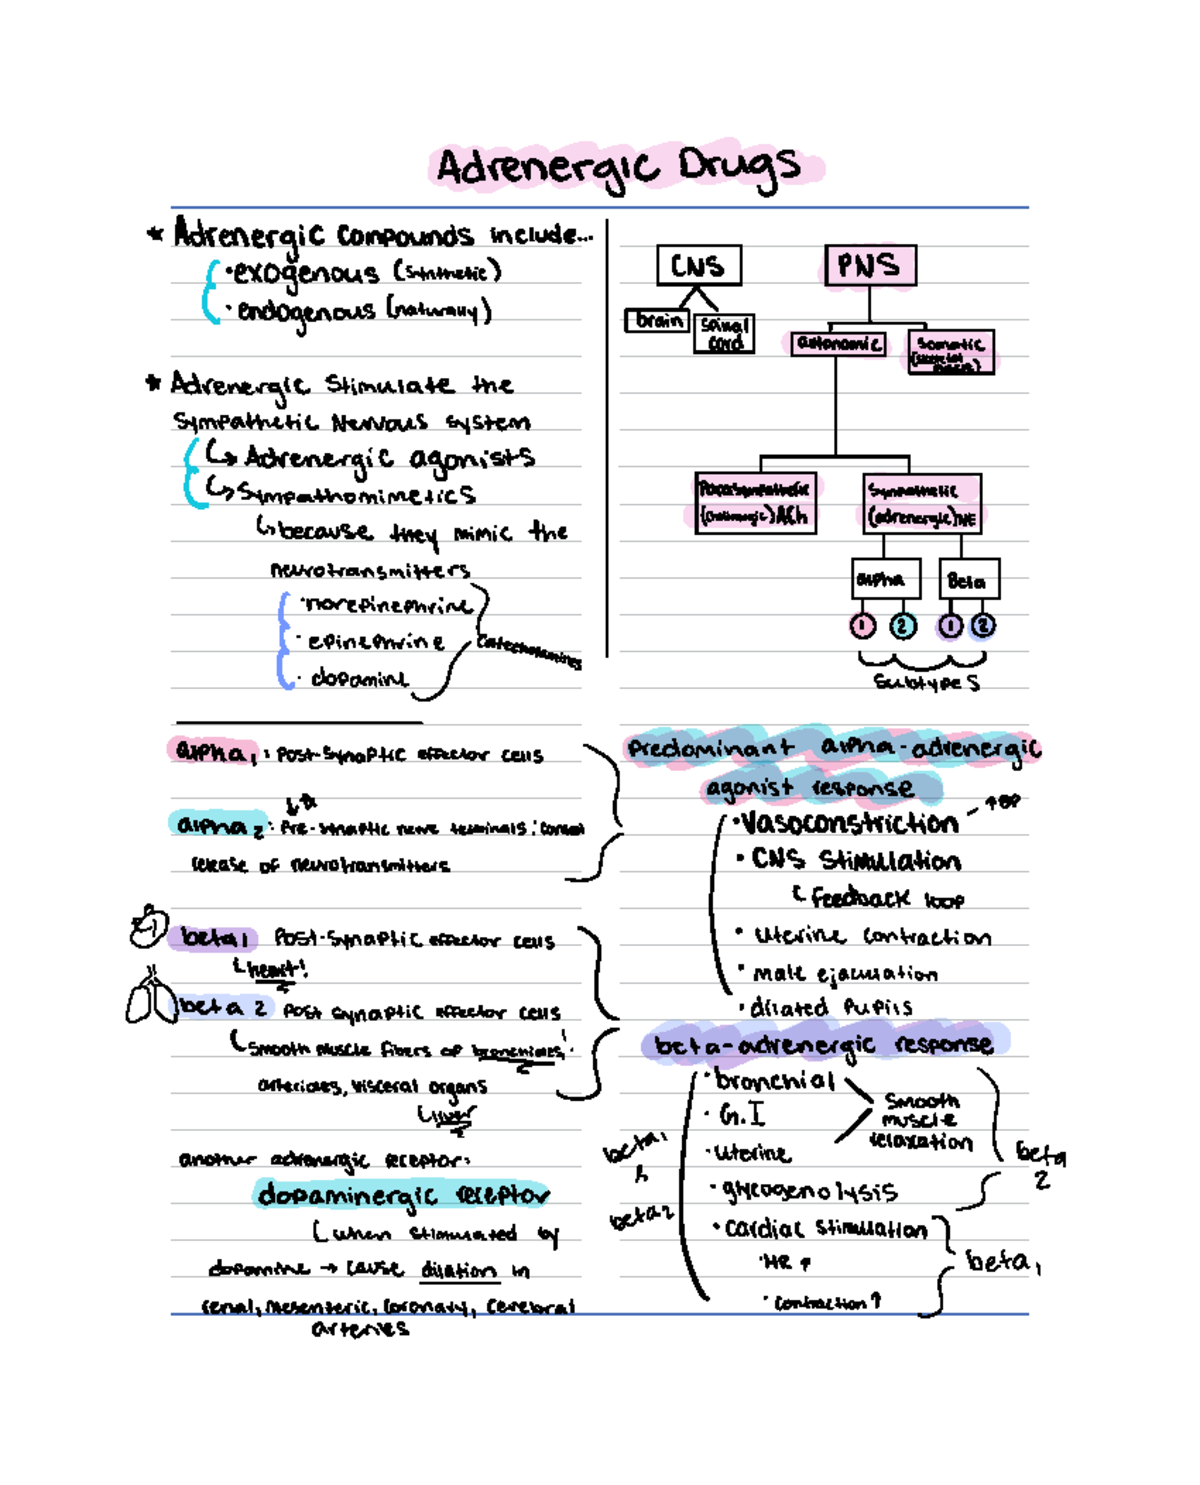 Adrenergic Drugs
* Adrenergic Compounds include...
· exogenous (synthetic)
· endogenous (naturally)
* Adrenergic Stimulate the
Sympathetic Nervous System
↳ Adrenergic agonists
↳ Sympathomimetics
↳ because they mimic the
neurotransmitters
· norepinephrine
· epinephrine
· dopamine
Catecholamines
CNS
brain
Spinal
cord
PNS
autonomic
Somatic
(skeletal
muscle)
Parasympathetic
(cholinergic) ACh
Sympathetic
(adrenergic) NE
alpha
Beta
1
2
1
2
Subtypes
alpha₁ : Post-Synaptic effector cells
alpha₂ : Pre-synaptic nerve terminals: control
release of neurotransmitters
beta1 Post-Synaptic effector cells
heart!
beta 2 Post synaptic effector cells
Smooth muscle fibers of bronchioles!
arterioles, visceral organs
liver
another adrenergic receptor:
dopaminergic receptor
when stimulated by
dopamine → cause dilation in
renal, mesenteric, coronary, cerebral
arteries
Predominant alpha-adrenergic
agonist response
· Vasoconstriction - ↑BP
· CNS Stimulation
feedback loop
· Uterine contraction
· male ejaculation
· dilated Pupils
beta-adrenergic response
· bronchial
· G.I
· Uterine
Smooth
muscle
relaxation
· glycogenolysis
beta
2
· Cardiac Stimulation
· HR ↑
· Contraction ↑
beta₁
beta₁
&
beta2